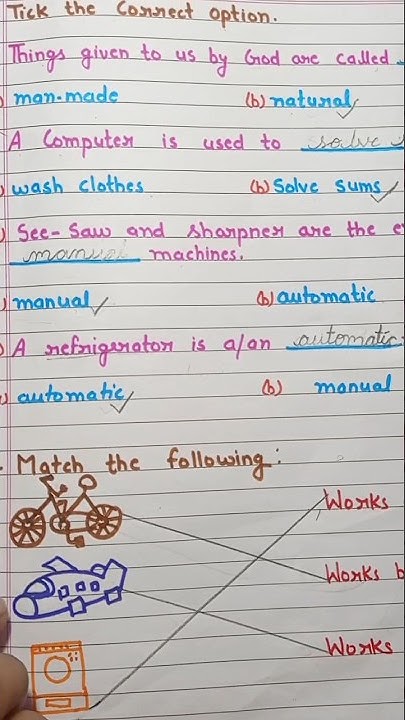 Tick the Correct option.
Things given to us by God are called
man-made (b) natural
A Computer is used to solve
wash clothes (b) Solve sums
See-Saw and sharpner are the
manual machines.
manual (b) automatic
A refrigerator is a/an automatic
automatic (b) manual
Match the following:
Works
Works
Works